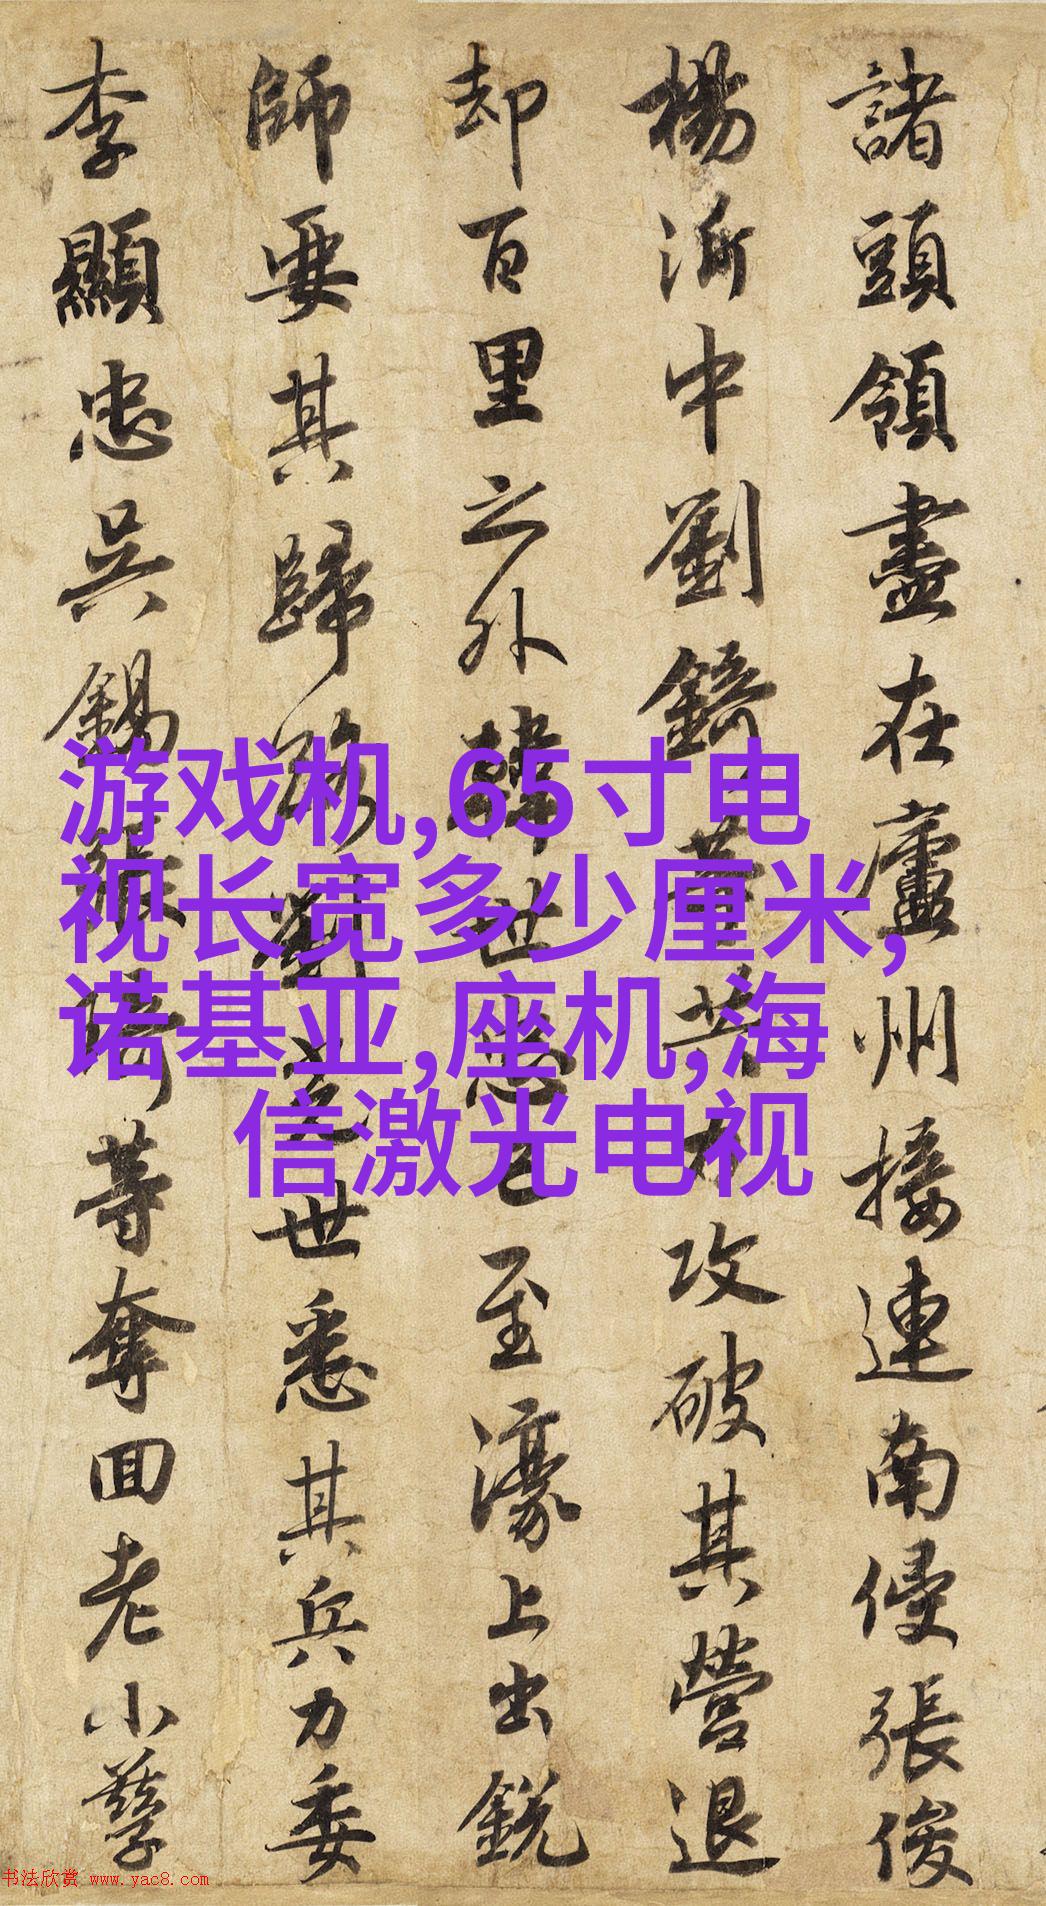 諸頭領盡在廬州接連南侵張俊
楊沂中劉錡等共力攻破其營退
却百里之外韓世忠已至濠上出銳
師要其歸路劉光世悉其兵力委
李顯忠吳錫張琦等奪回老小孳
游戏机,65寸电
视长宽多少厘米,
诺基亚,座机,海
信激光电视
书法欣赏 www.yac8.com